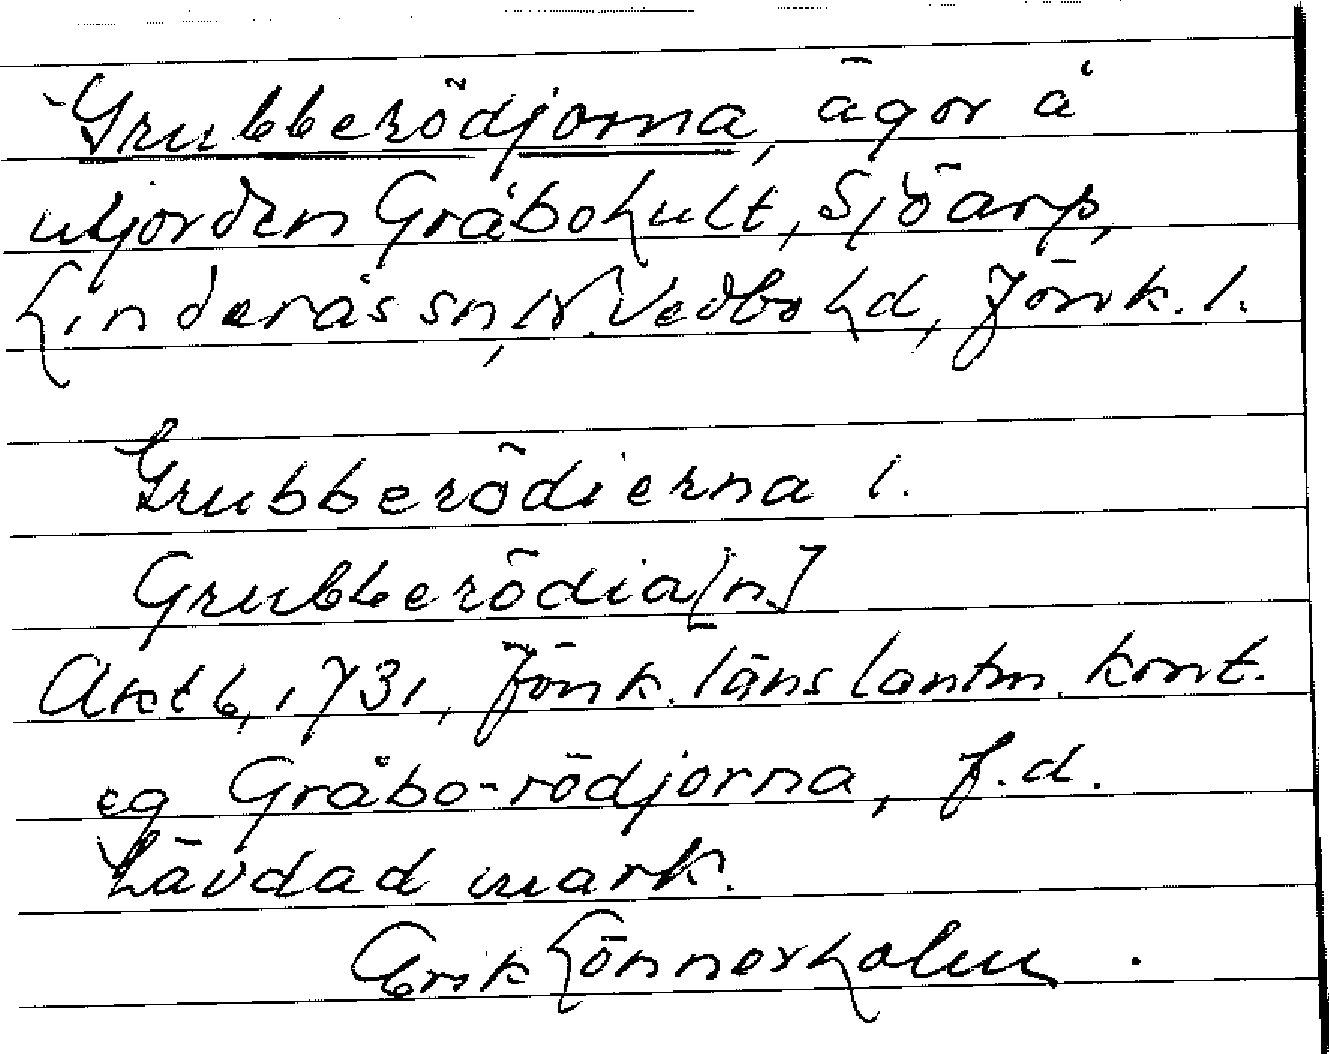 Grubberödjorna, ägor å
utjorden Gråbohult, Sjöarp,
Linderås sn, N. Vedbo hd, Jönk. l.
Grubberödierna l.
Grubberödia[n]
Akt 6, 1731, Jönk. läns lantm. kont.
eg Gråbo-rödjorna, f.d.
hävdad mark.
Erik Lönnerholm.